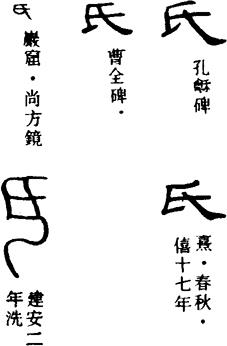 氏
孔龢碑
氏
曹全碑・
氏
巖窟・尚方鏡
氏
熹・春秋・
僖十七年
氏
建安二
年洗